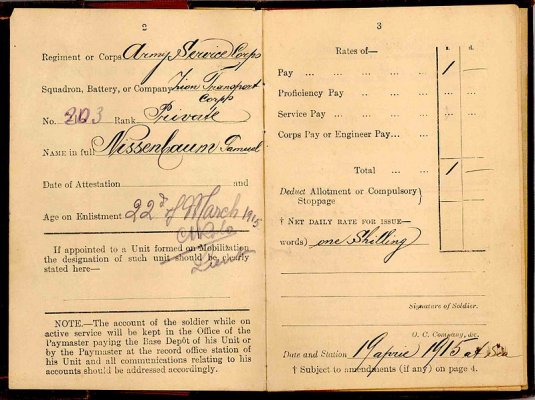 2
Regiment or Corps Army Service Corps
Squadron, Battery, or Company Zion Transport
Corps
No. 203 Rank Private
NAME in full Nissenbaum Samuel
Date of Attestation and
Age on Enlistment 22d of March 1915
If appointed to a Unit formed on Mobilization
the designation of such unit should be clearly
stated here—
NOTE.—The account of the soldier while on
active service will be kept in the Office of the
Paymaster paying the Base Depôt of his Unit or
by the Paymaster at the record office station of
his Unit and all communications relating to his
accounts should be addressed accordingly.
3
Rates of—
s. d.
Pay ... ... ... ... 1
Proficiency Pay ... ... ...
Service Pay ... ... ... ...
Corps Pay or Engineer Pay... ...
Total ... ... 1
Deduct Allotment or Compulsory }
Stoppage
† NET DAILY RATE FOR ISSUE—
words) one Shilling
Signature of Soldier.
O. C. Company, &c.
Date and Station 19 april 1915 at
† Subject to amendments (if any) on page 4.